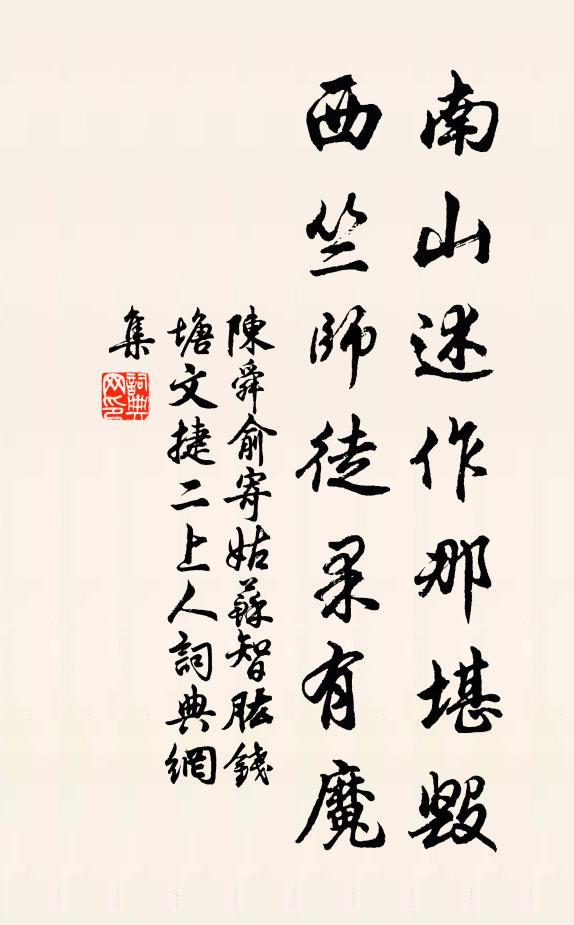 南山述作那堪毀
西竺師徒果有魔
陳舜俞寄姑蘇智肱錢
塘文捷二上人詞典網
集
詞典網印